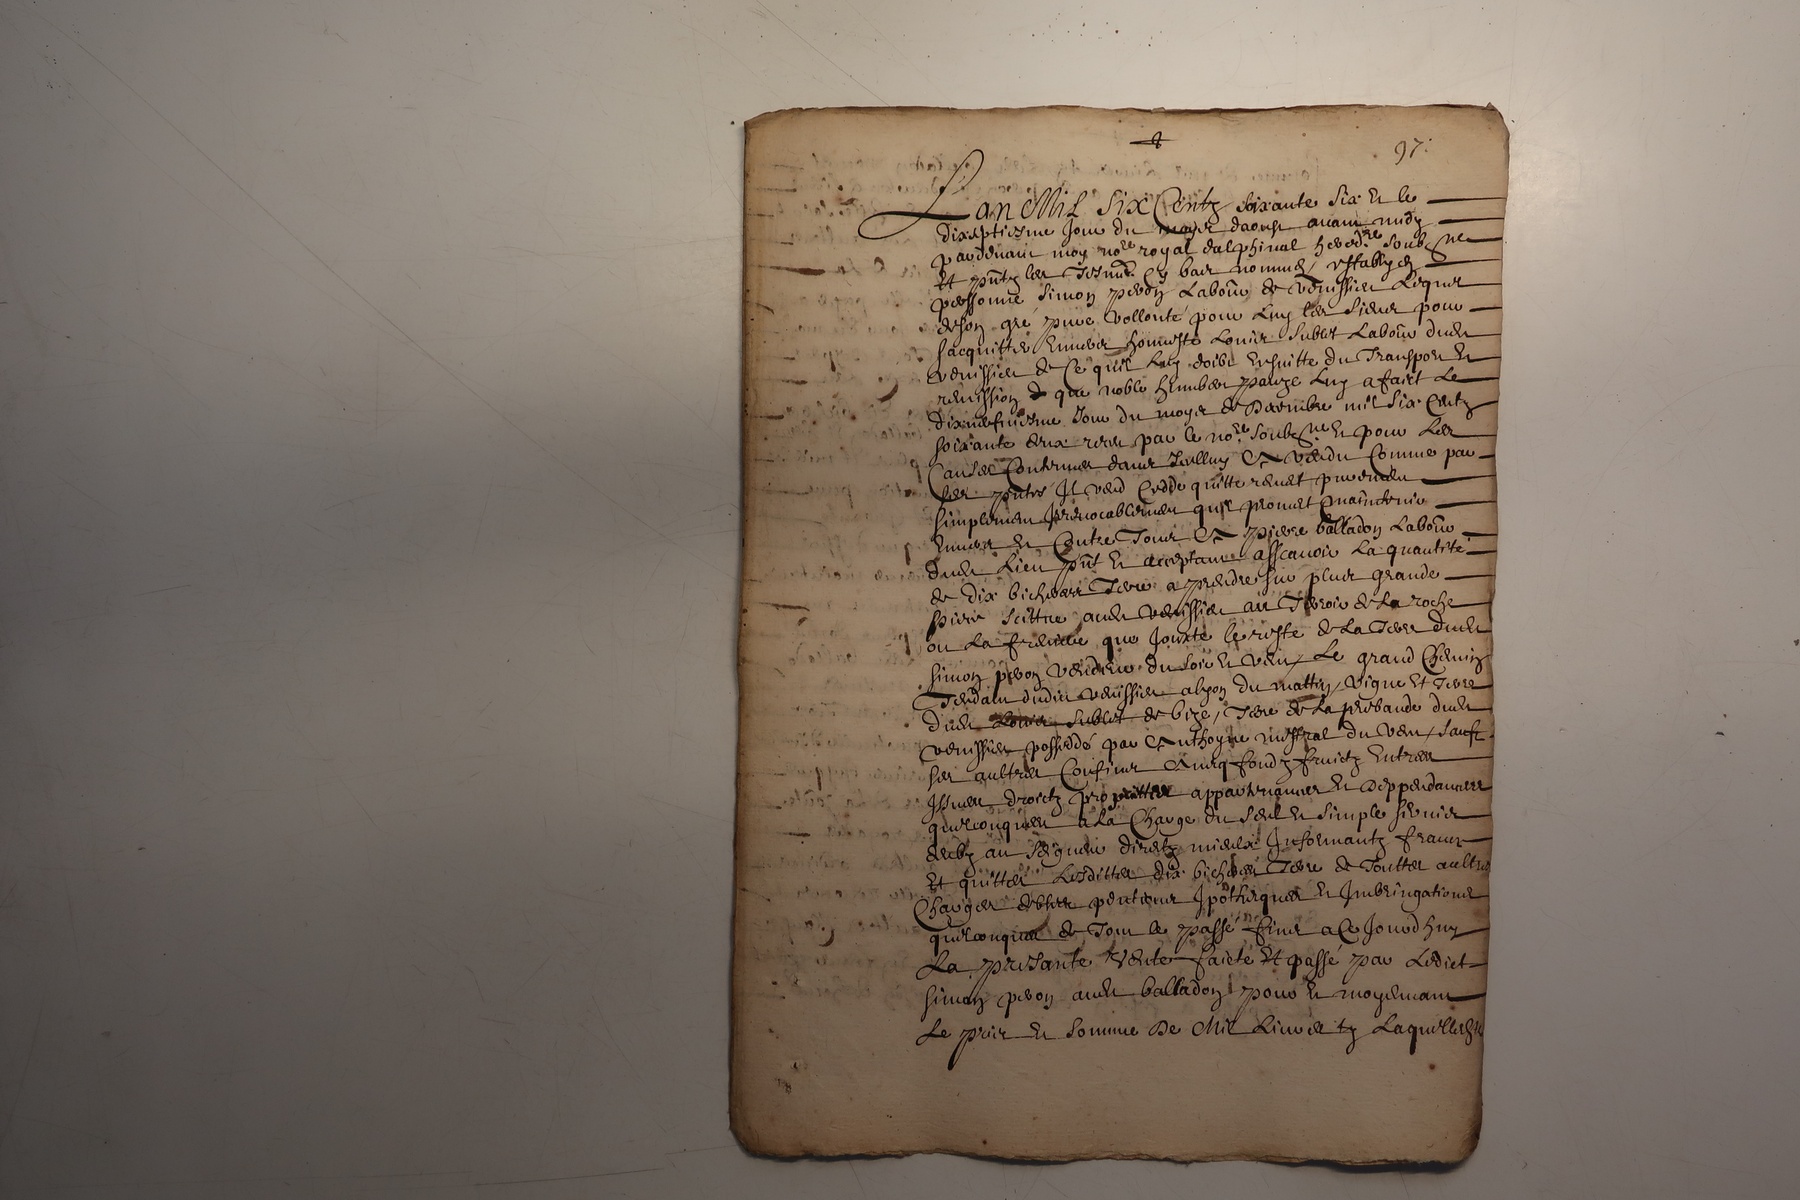 97
Lan Mil Six Centz soixante six Et le
dixseptiesme Jour du mois daoust avant midy
pardevant moy no.re royal dalphinal hered.re soubz.ne
Et p̃ntz les Tesmo. cy bas nommes, estably en
personne Simon peron Labour de venissieu Lequel
de son gré pure vollonté pour Luy les Siens pour
sacquitter Envers honneste Louis Sublet Labour dudt
venissieu de Ce quil Luy doibt Ensuitte du Transport Et
remission que noble humbert Luy a faict Le
dixneufviesme Jour du moys de Decembre mil six Centz
soixante deux receu par le no.re soubz.ne Et pour Les
Causes Contenues dans Icelluy A vendu Comme par
ces p̃ntes Il vend Cedde quitte remet purement
simplement Irrevocablement quil promet maintenir
Envers Et Contre Tous A pierre balladon Labour
dudt Lieu p̃nt Et acceptant assçavoir La quantité
de dix bicherées Terre a prendre sur plus grande
piece scittue audt venissieu au Terroir de La roche
ou La que Jouxte le reste de La Terre dudt
simon peron vendeur du soir Et vent, Le grand Chemin
Tendant dudict venissieu a lyon du mattin, vigne Et Terre
dudt Louis Sublet de bize, Terre de La prebande dudt
venissieu possedé par Anthoyne mistral du vent, sauf
ses aultres Confins Avecq fondz fruictz Entrees
Issues droictz proprietés appartenances Et Deppendances
quelconques a La Charge du seul Et simple servis
deub au seigneur direct mieux Informantz francs
Et quittes Lesdittes dix bicherées Terre de Touttes aultres
Charges debtes pentions Ipotheques Et Imbringations
quelconques de Tout le passé Jusques a Ce Jourdhuy
La presante vente faicte Et passé par Ledict
simon peron audt balladon pour Et moyennant
Le prix Et somme De Mil Livres tz Laquelle